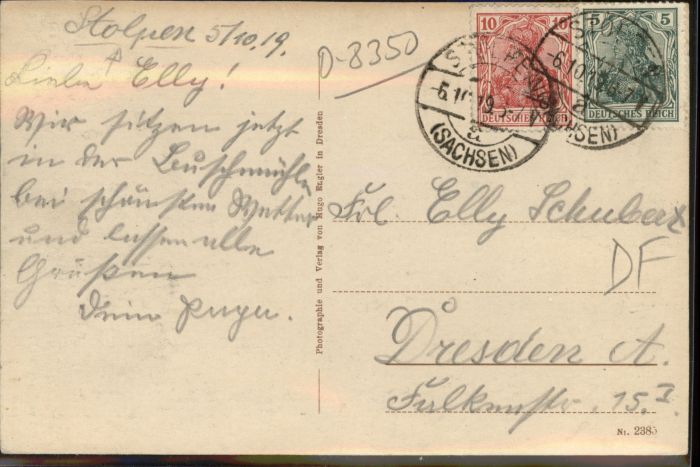 Stolpen 5/10.19.
Liebe Elly!
Wir sitzen jetzt
in der Buschmühle
bei schönsten Wetter
und lassen alle
Grüßen
Dein
D-8350
10 10
DEUTSCHES REICH
5 5
DEUTSCHES REICH
STOLPEN
6.10.19
a
(SACHSEN)
STOLPEN
6.10.19
a
(SACHSEN)
Photographie und Verlag von Hugo Engler in Dresden
Frl. Elly Schubert
DF
Dresden A.
Falkenstr. 15. I
Nr. 2385